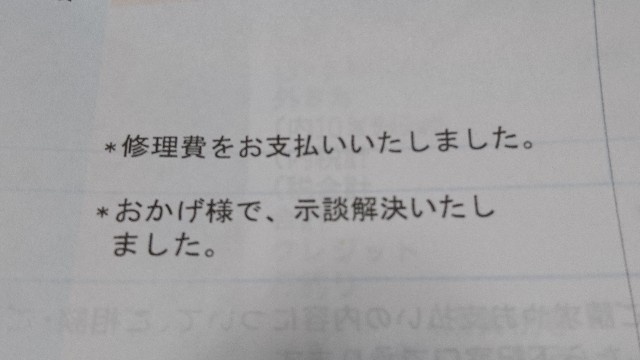 *修理費をお支払いいたしました。
*おかげ様で、示談解決いたし
ました。